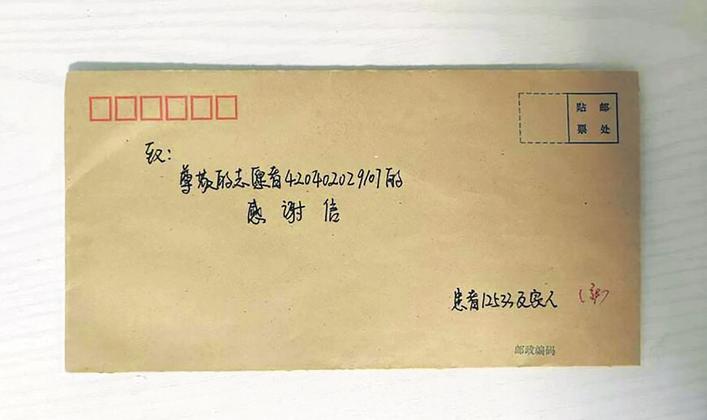 贴 邮
票 处
致:
尊敬的志愿者420402029107的
感谢信
患者12533及家人
邮政编码